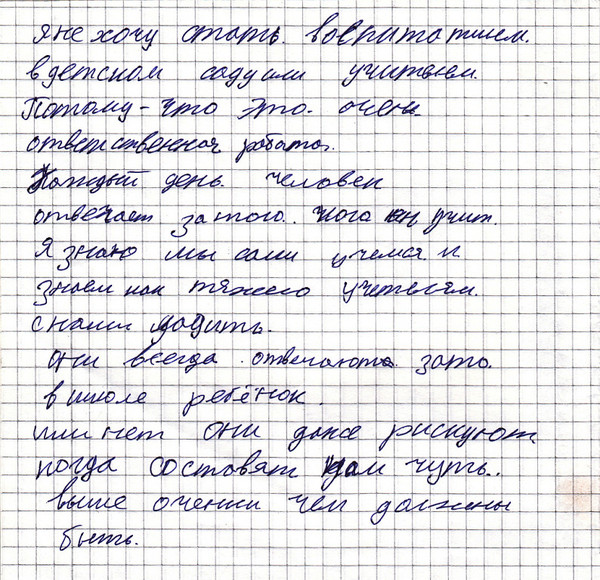 яне хочу стать. воспитателем.
в детском саду или учителем.
Потому-что это. очень.
ответственная работа.
Каждый день. человек
отвечает за того.. кого он учит.
Я знаю мы сами учемся. и
знаем как тяжело учетелям.
с нами ладить.
они всегда. отвечают. зато.
в школе ребёнок.
или нет они даже рискуют.
когда составят нам чуть..
выше оченки чем должны
быть.